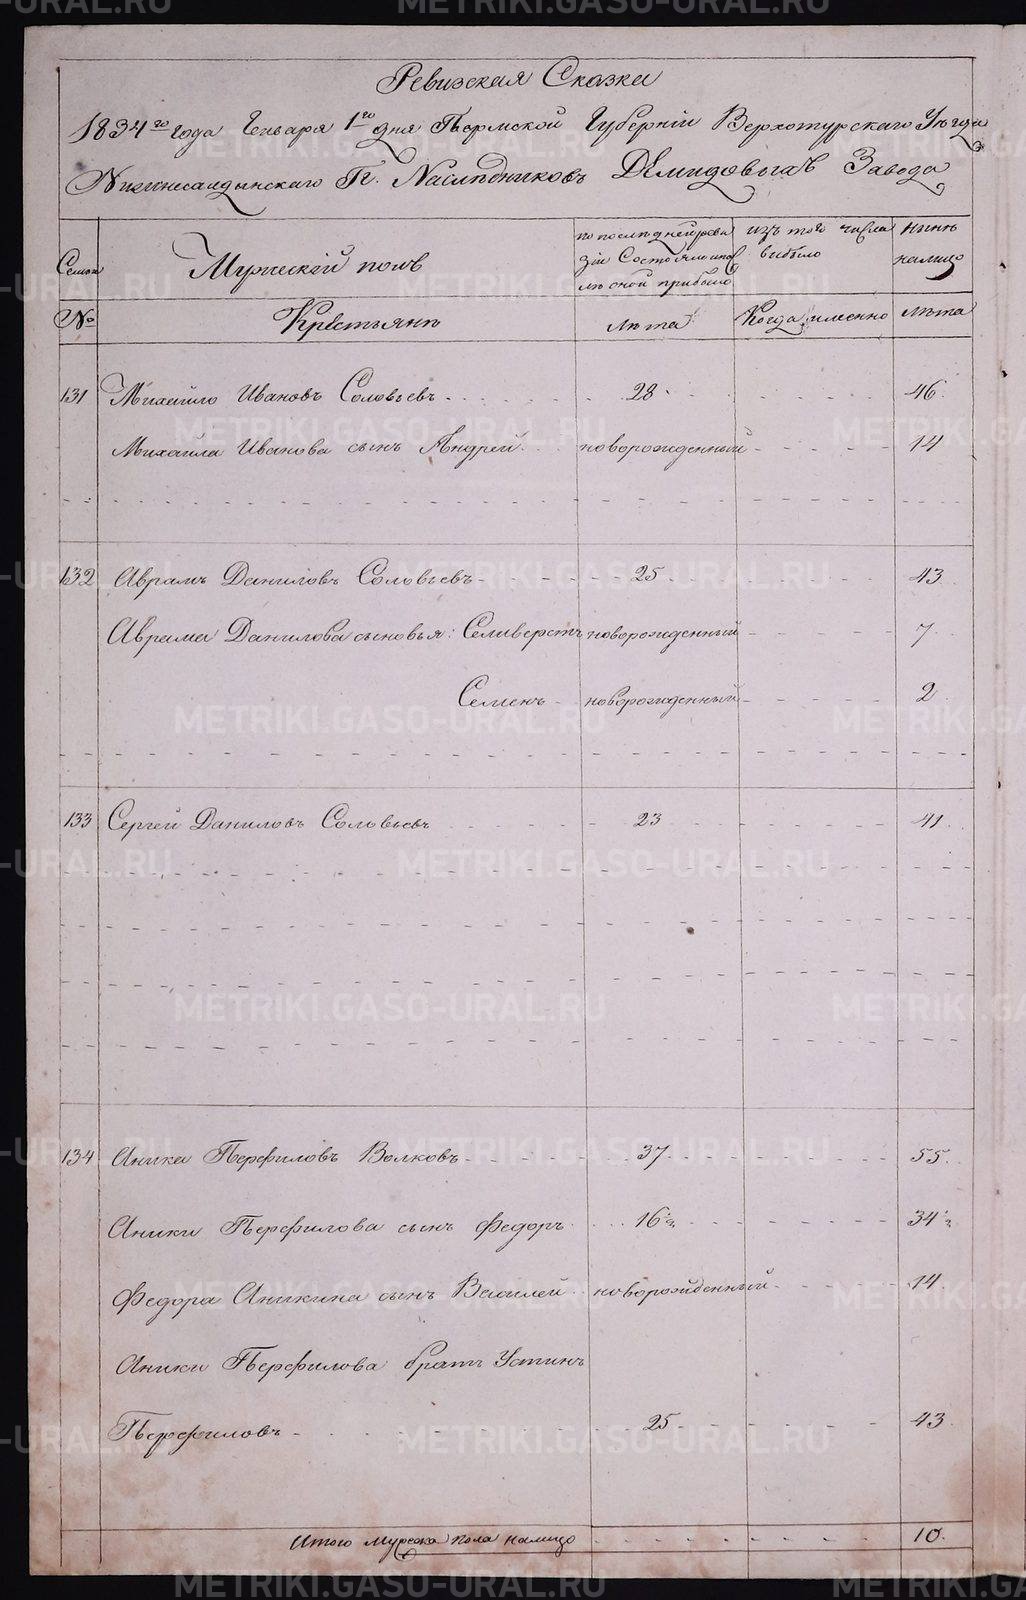 Ревизская Сказка
1834го года Генваря 1го дня Пермской Губернiи Верхотурскаго Уѣзда
Нижнесалдинскаго Гг. Наслѣдниковъ Демидовыхъ Завода
Семьи
Мужескiй полъ
по последней реви
зiи Состояло и по
слѣ оной прибыло
изъ того числа
выбыло
нынѣ
налицо
№
Крестьянѣ
Лѣта
Когда именно
Лѣта
131 Михайло Ивановъ Соловьевъ 28 46
Михайла Иванова сынъ Андрей новорожденный 14
132 Аврамъ Даниловъ Соловьевъ 25 43
Аврама Данилова сыновья: Селиверстъ новорожденный 7
Семенъ новорожденный 2
133 Сергей Даниловъ Соловьевъ 23 41
134 Аника Перфиловъ Волковъ 37 55
Аники Перфилова сынъ Федоръ 16½ 34½
Федора Аникина сынъ Василей новорожденный 14
Аники Перфилова братъ Устинъ
Перфиловъ 25 43
Итого мужеска пола налицо 10
METRIKI.GASO-URAL.RU